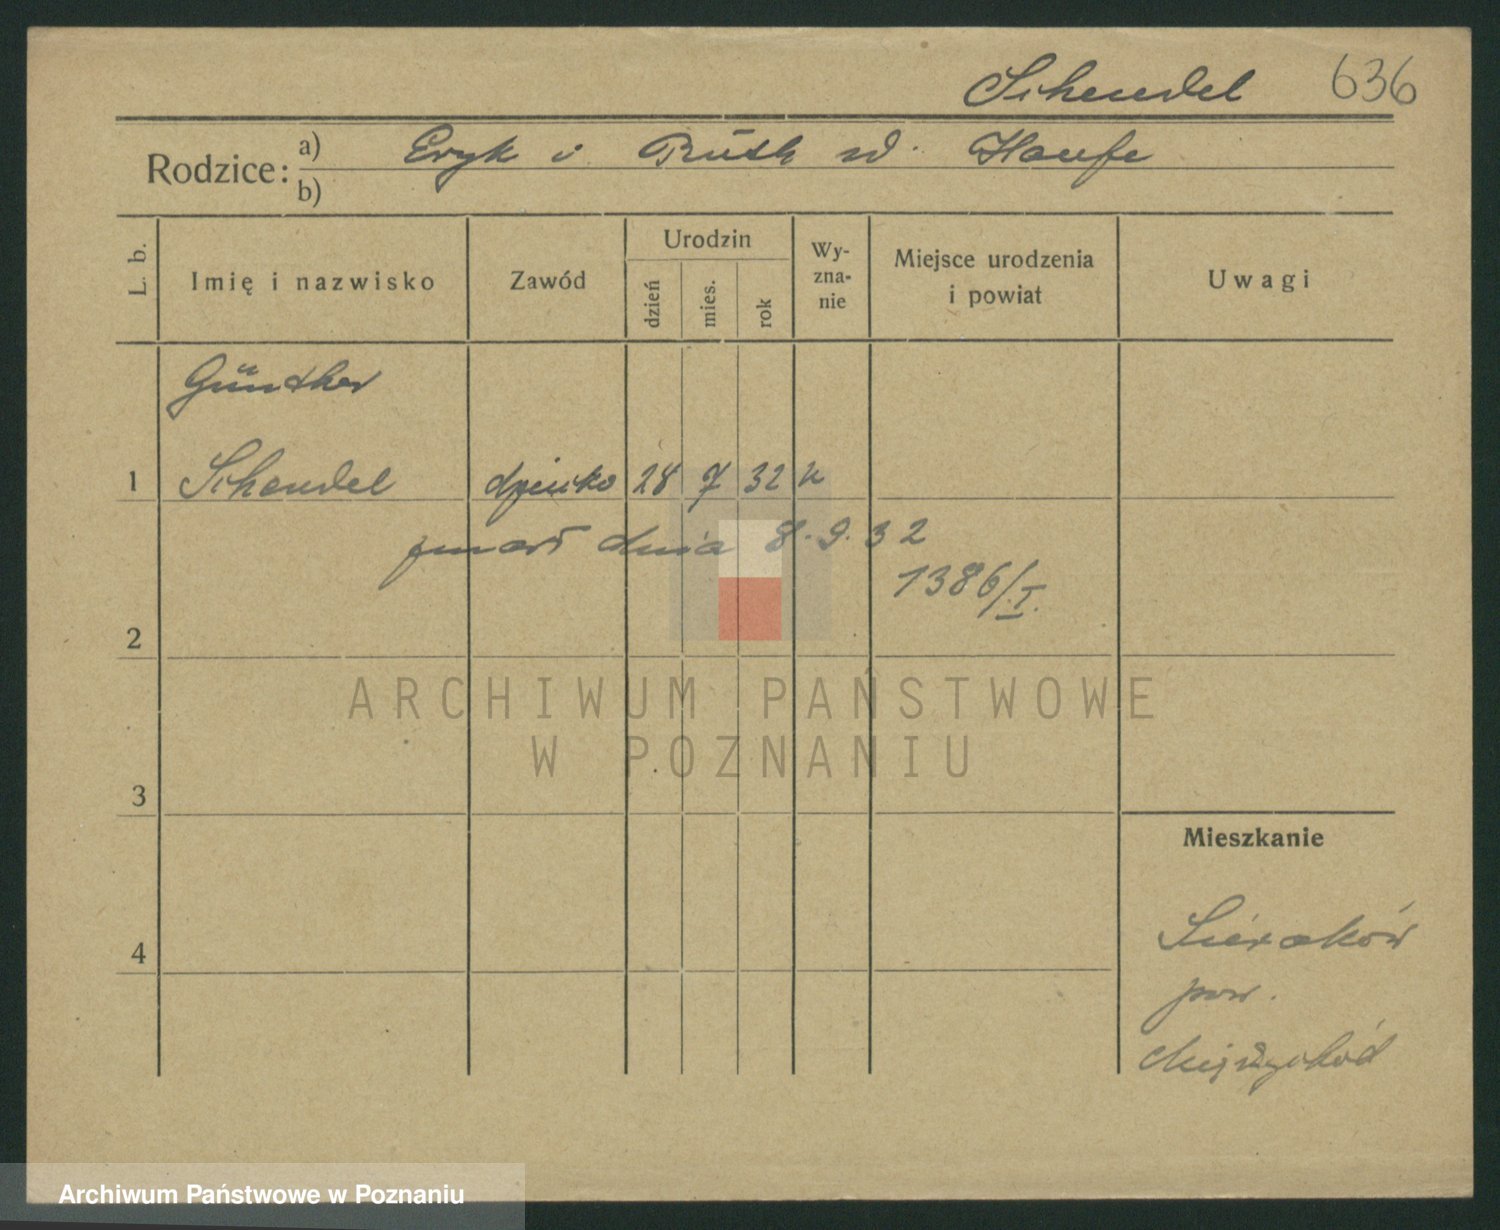 Schendel 636
Rodzice: a) Eryk i Ruth ur. Haufe
b)
L. b.
Imię i nazwisko
Zawód
Urodzin
dzień
mies.
rok
Wy-
zna-
nie
Miejsce urodzenia
i powiat
Uwagi
Günther
1 Schendel dziecko 28 7 32
zmarł dnia 8.9.32
1386/I.
2
ARCHIWUM PAŃSTWOWE
W POZNANIU
3
Mieszkanie
4
Sieraków
pow.
Międzychód
Archiwum Państwowe w Poznaniu